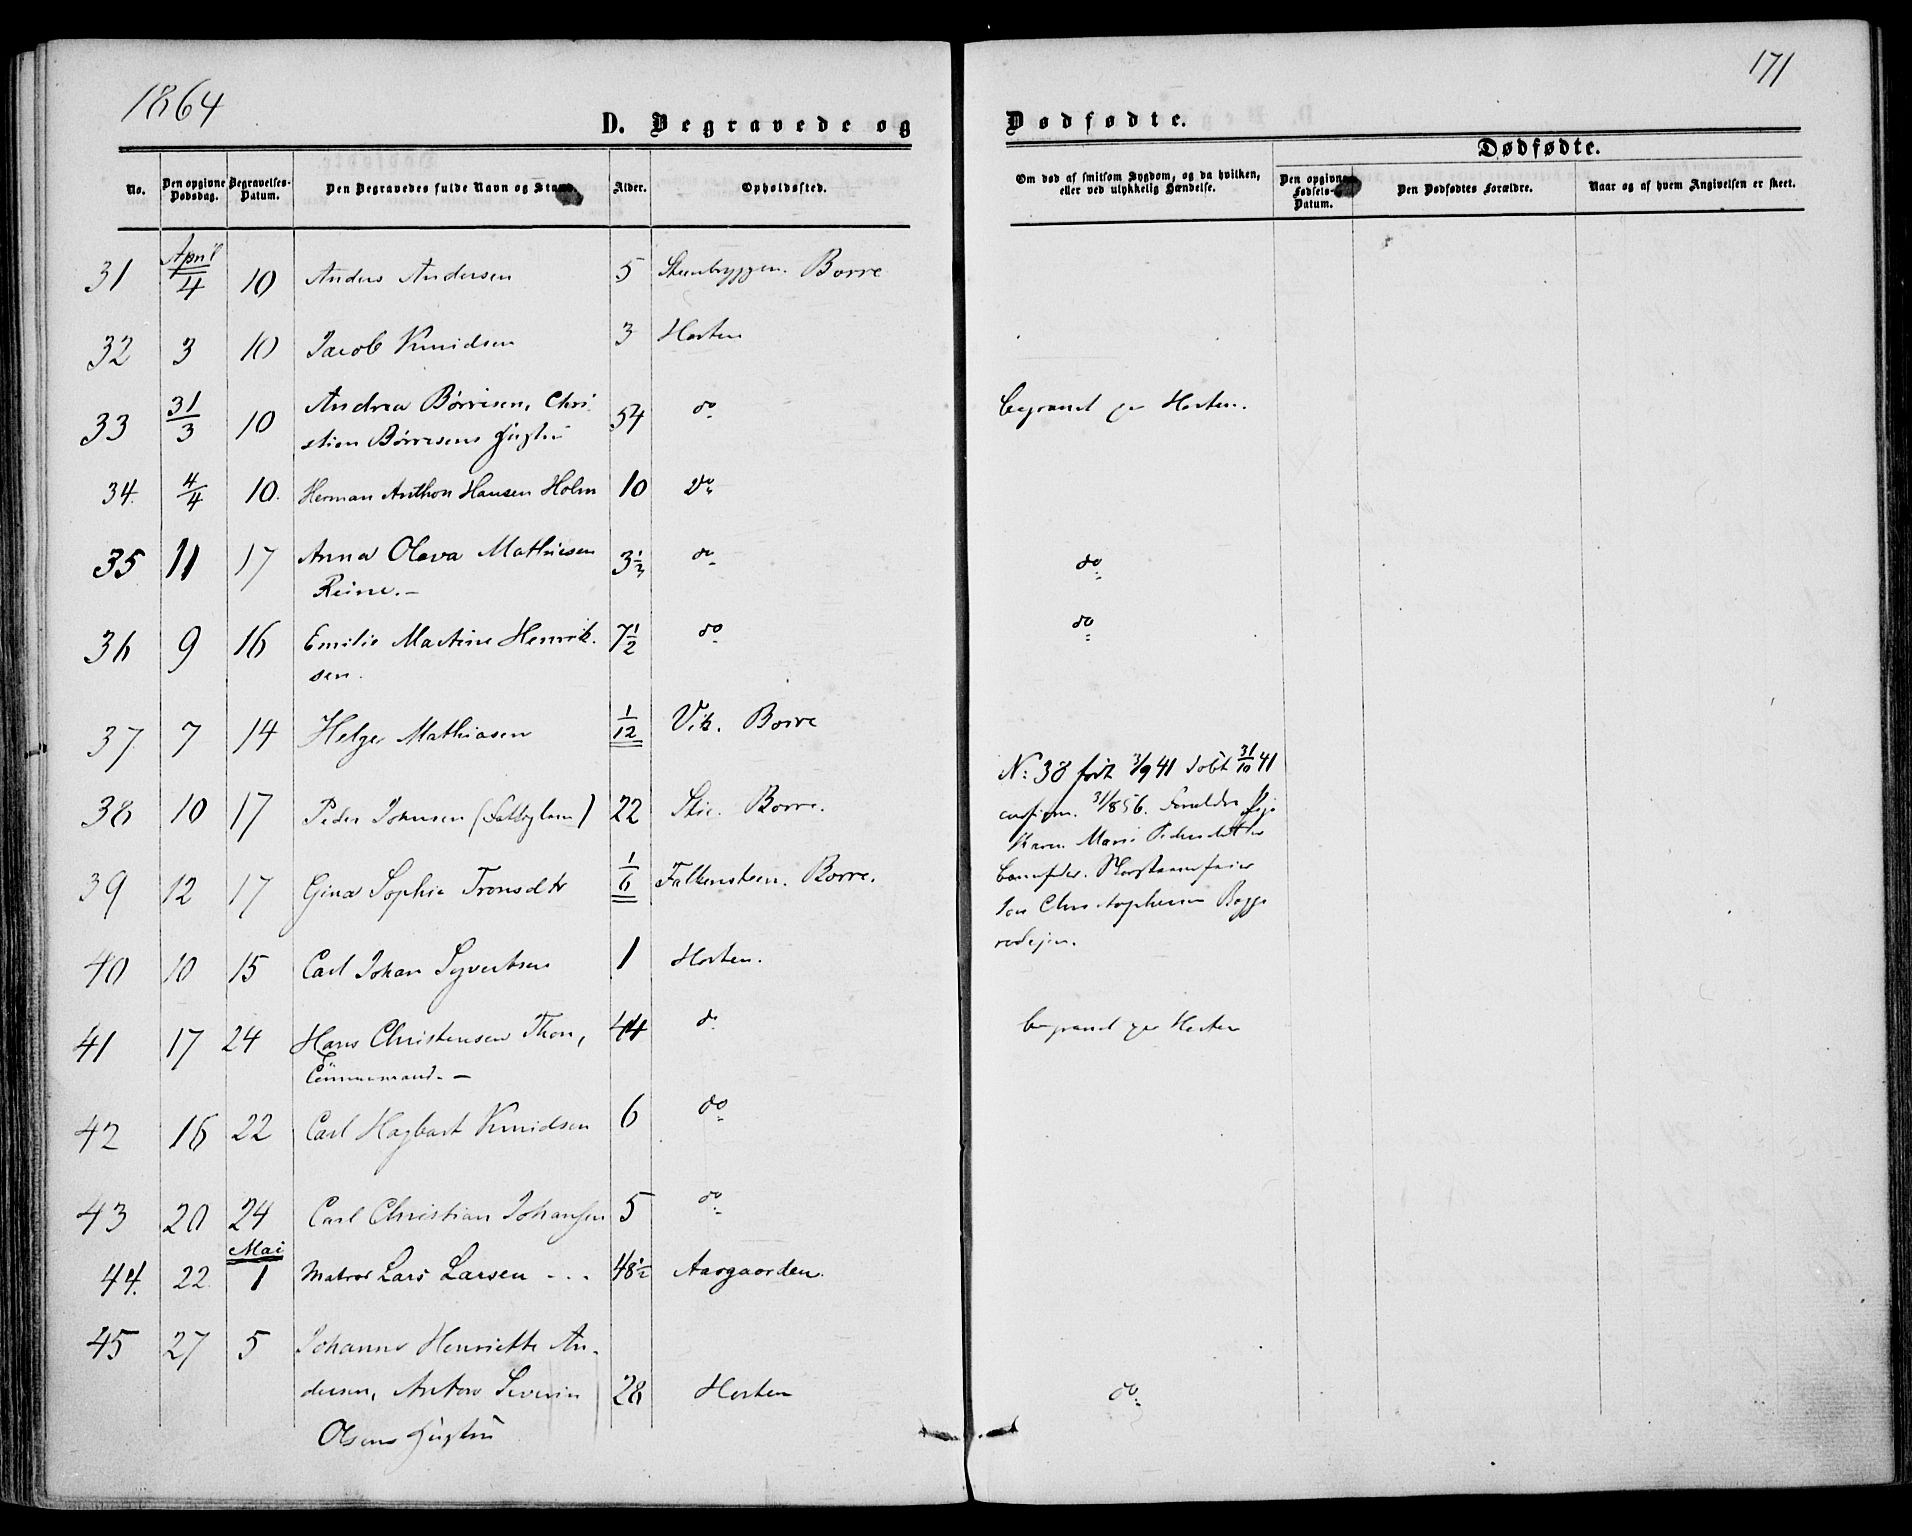 1864
171
D. Begravede og
Dødfødte.
Dødfødte.
No.
Den opgivne Dødsdag.
Begravelses-Datum.
Den Begravedes fulde Navn og Stand.
Alder.
Opholdssted.
Om død af smitsom Sygdom, og da hvilken, eller ved ulykkelig Hændelse.
Den opgivne Fødsels-Datum.
Den Dødfødtes Forældre.
Naar og af hvem Angivelsen er skeet.
31 April 4 10 Anders Andersen 5 Steenbryggen. Borre
32 3 10 Jacob Knudsen 3 Horten
33 31/3 10 Andrea Børresen, Chri- 54 do begravet paa Horten.
stian Børresens
34. 4/4 10. Herman Anthon Hansen Holm 10 Do
35 11 17 Anna Olava Mathisen 3½ do do
Reine.-
36 9 16 Emilie Martine Henrik- 7½ do do
sen.
37 7 14 Helge Mathiasen 1/12 Vik. Borre
38 10 17 Peder Johnsen 22 Borre.
N: 38 født 3/9 41 Døbt 31/10 41
39 12 17 Gina Sophie Tronsdtr 1/6 Falkensteen. Borre.
Karen Marie
Christophersen
40 10 15 Carl Johan Syvertsen 1 Horten.
41 17 24 Hans Christensen Thon, 44 do begravet paa Horten
Tømmermand.-
42 16 22 Carl Hagbart Knudsen 6 do
43 20 24 Carl Christian Johansen 5 do
Mai
44. 22. 1 Matros Lars Larsen - - - 48½ Aasgaarden.
45 27 5 Johanne Henriette An-
dersen, Anton Severin 28 Horten do
Olsens